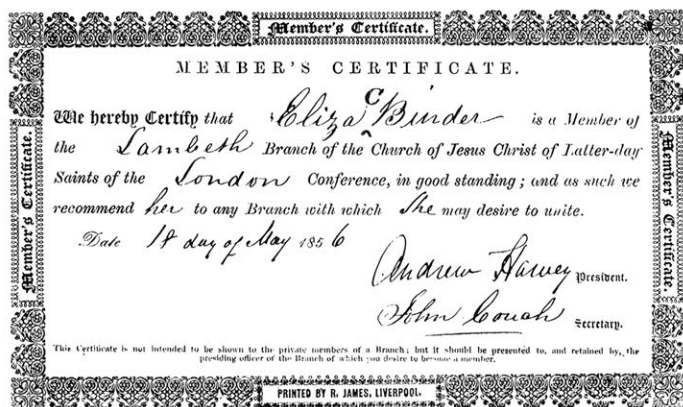 Member's Certificate.
Member's Certificate.
Member's Certificate.
MEMBER'S CERTIFICATE.
C
We hereby Certify that Eliza ^ Binder is a Member of
the Lambeth Branch of the Church of Jesus Christ of Latter-day
Saints of the London Conference, in good standing; and as such we
recommend her to any Branch with which She may desire to unite.
Date 18 day of May 1856
Andrew Harvey President.
John Couch Secretary.
This Certificate is not intended to be shown to the private members of a Branch; but it should be presented to, and retained by, the
presiding officer of the Branch of which you desire to become a member.
PRINTED BY R. JAMES, LIVERPOOL.